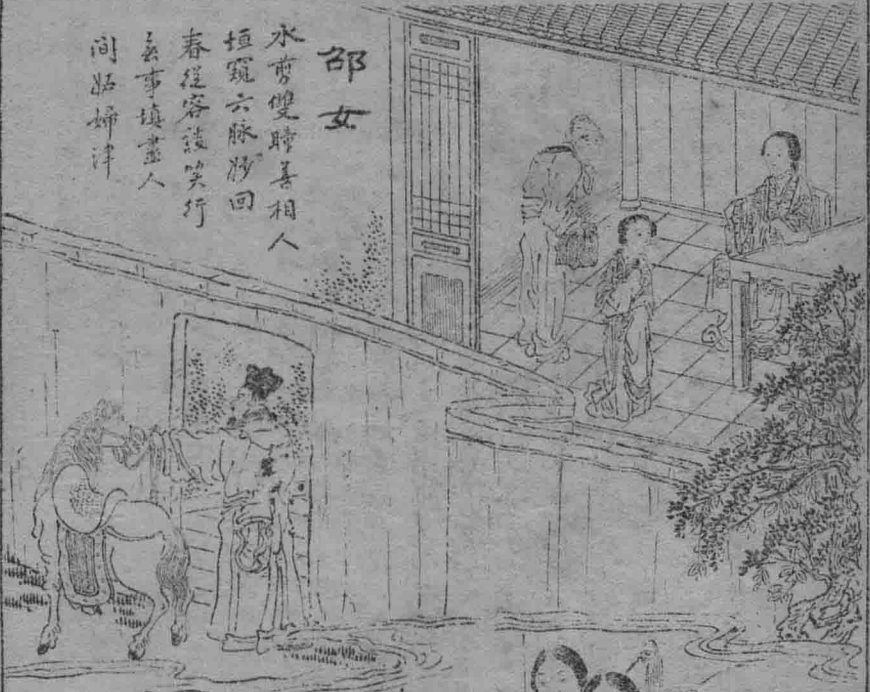 邵女
水剪雙瞳善相人
垣窺六脉妙回
春從容談笑行
無事填盡人
間妬婦津